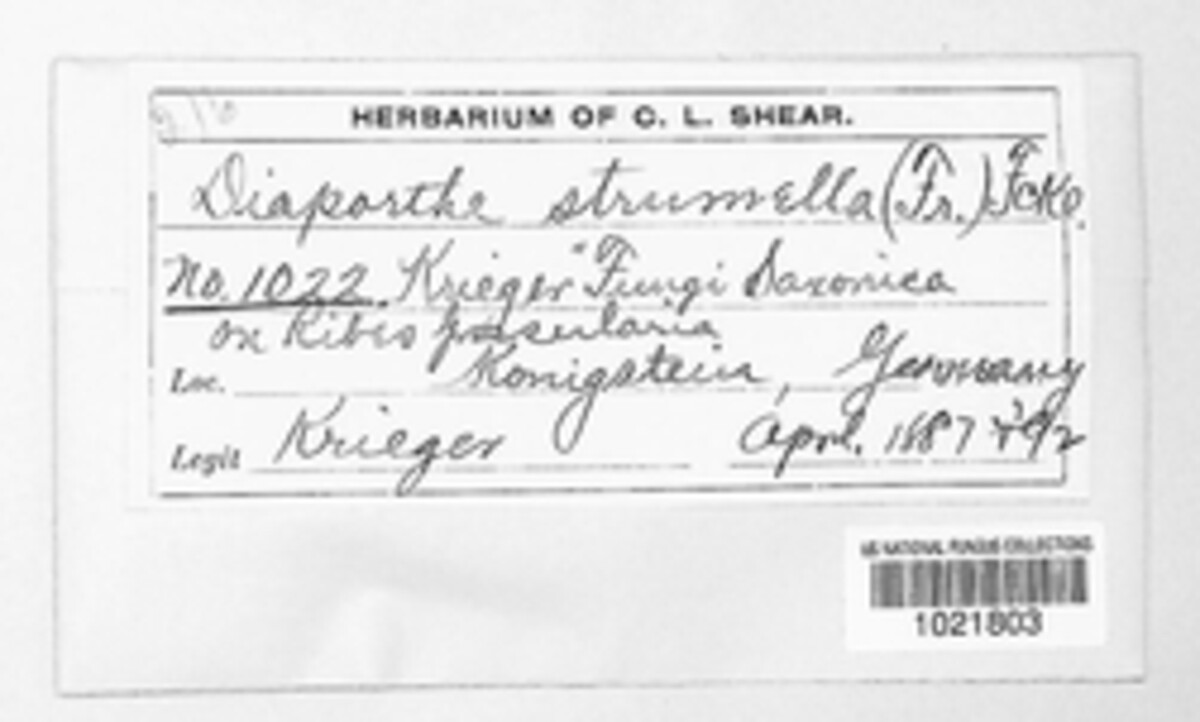 HERBARIUM OF C. L. SHEAR.
Diaporthe strumella (Fr.) Fckl.
No. 1022. Krieger "Fungi Saxonica
on Ribes grossularia
Loc. Konigstein, Germany
Legit Krieger April. 1887
US NATIONAL FUNGUS COLLECTIONS
1021803